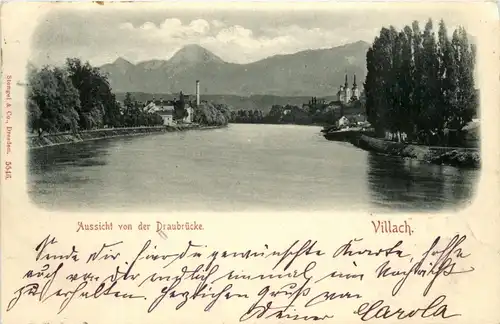 Stengel & Co., Dresden. 5546.
Aussicht von der Draubrücke.
Villach.
Sende Dir hier die gewünschte Karte, hoffe
auch von Dir endlich einmal im Nachricht
zu erhalten. Herzlichen Gruß von
Deiner Carola